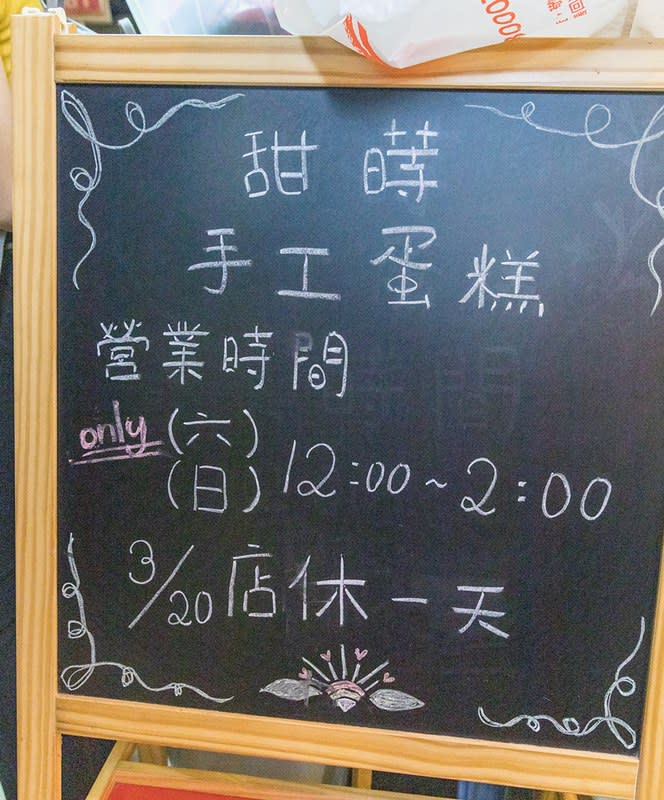 甜蒔
手工蛋糕
營業時間
only (六)
(日) 12:00~2:00
3/20店休一天